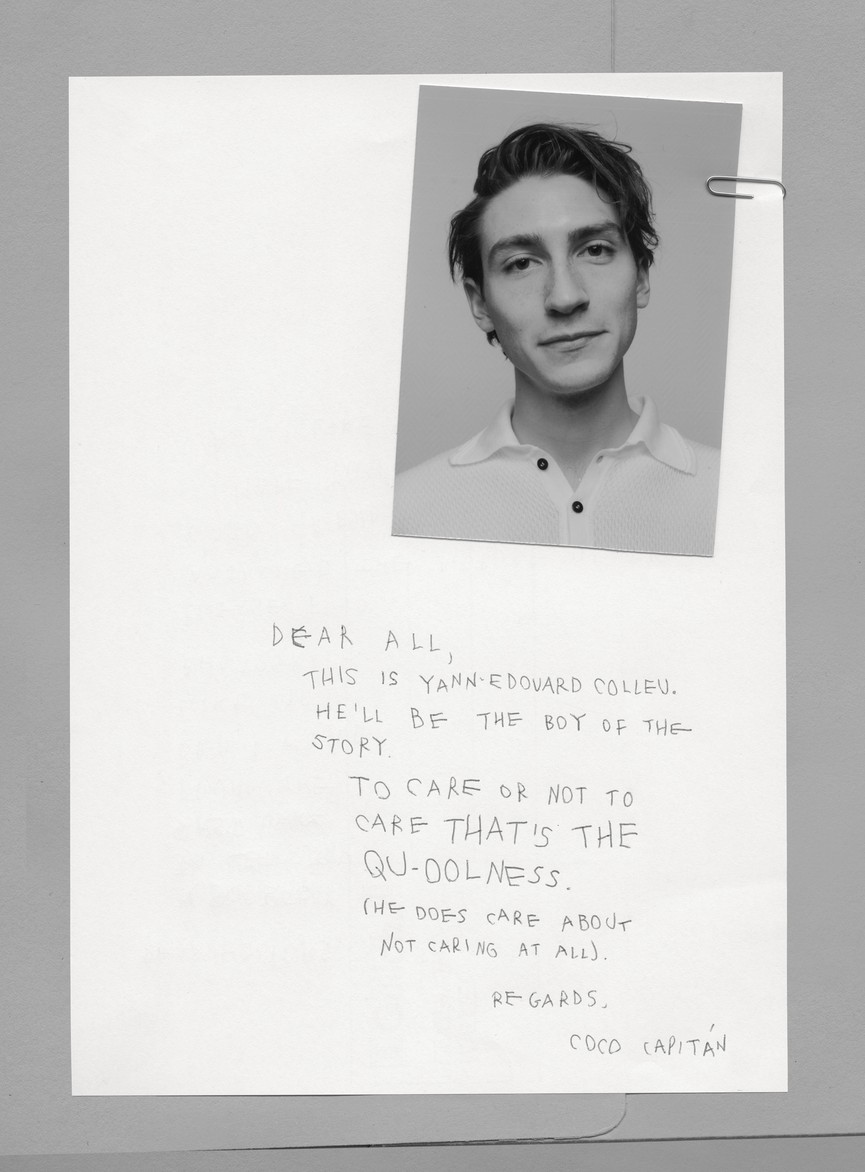 DEAR ALL,
THIS IS YANN-EDOUARD COLLEU.
HE'LL BE THE BOY OF THE
STORY.
TO CARE OR NOT TO
CARE THAT'S THE
QU-OOLNESS.
(HE DOES CARE ABOUT
NOT CARING AT ALL).
REGARDS,
COCO CAPITÁN